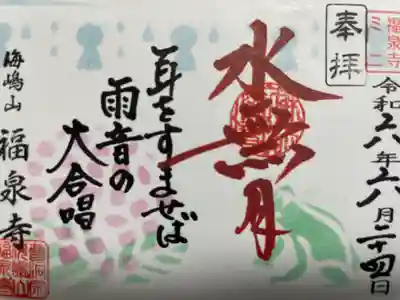 奉拝
福泉寺
ミニ
令和六年六月二十四日
水無月
耳をすませば
雨音の
大合唱
海嶋山
福泉寺